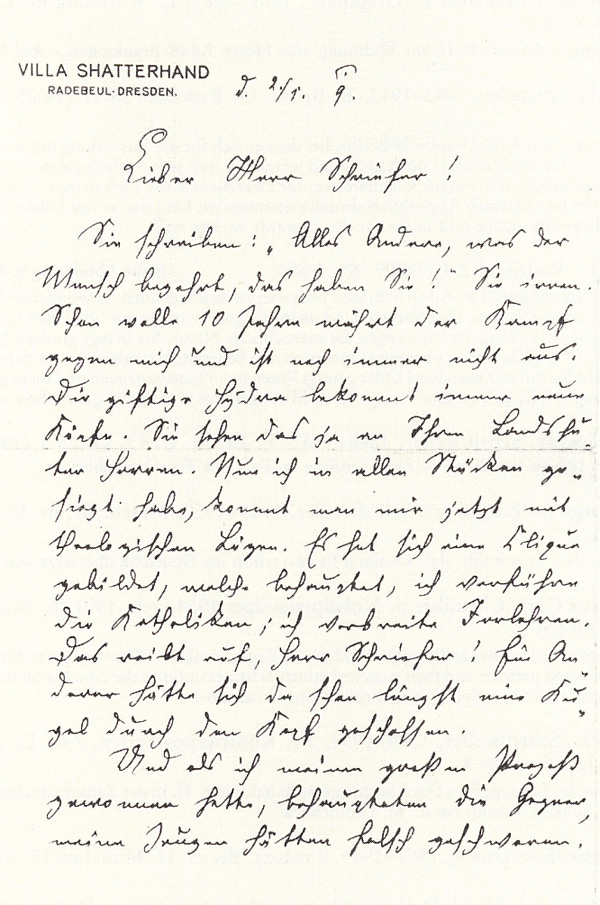 VILLA SHATTERHAND
RADEBEUL-DRESDEN.
d. 2/1. 9.
Lieber Herr Schriefer!
Sie schreiben: „Alles Andere, was der
Mensch begehrt, das haben Sie!" Sie irren.
Schon volle 10 Jahre währt der Kampf
gegen mich und ist noch immer nicht aus.
Die giftige Hydra bekommt immer neue
Köpfe. Sie sehen das ja an Ihrem
Herren. Nun ich in allen Stücken ge-
siegt habe, kommt man mir jetzt mit
theologischen Lügen. Es hat sich eine Clique
gebildet, welche behauptet, ich verführe
die Katholiken; ich verbreite Irrlehren.
Das reibt auf, Herr Schriefer! Ein An-
derer hätte sich da schon längst eine Ku-
gel durch den Kopf geschossen.
Und als ich meinen großen Prozeß
gewonnen hatte, behaupteten die Gegner,
meine Zeugen hätten falsch geschworen.